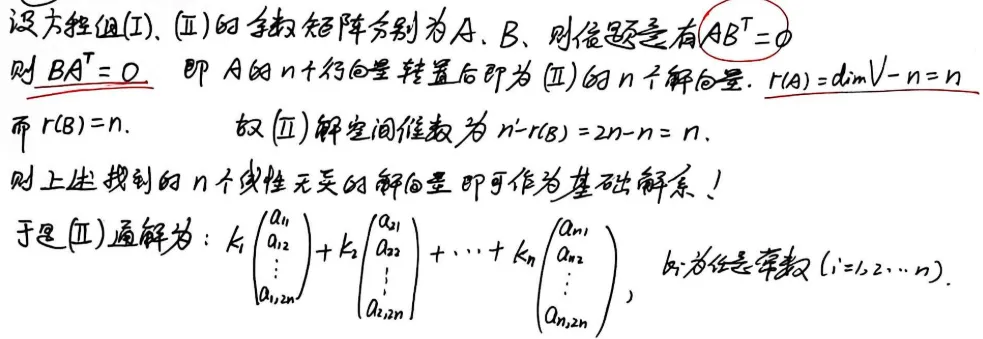 设方程组(I)、(II)的系数矩阵分别为A、B、则依题意有 ABᵀ=0
则 BAᵀ=0 即 A的n个行向量转置后即为(II)的n个解向量. r(A)=dimV-n=n
而 r(B)=n. 故(II)解空间维数为 n'-r(B)=2n-n=n.
则上述找到的n个线性无关的解向量即可作为基础解系!
于是(II)通解为: k₁(a₁₁ a₁₂ ⋮ a₁,₂ₙ)+k₂(a₂₁ a₂₂ ⋮ a₂,₂ₙ)+⋯+kₙ(aₙ₁ aₙ₂ ⋮ aₙ,₂ₙ), kᵢ为任意常数(i=1,2,⋯n).